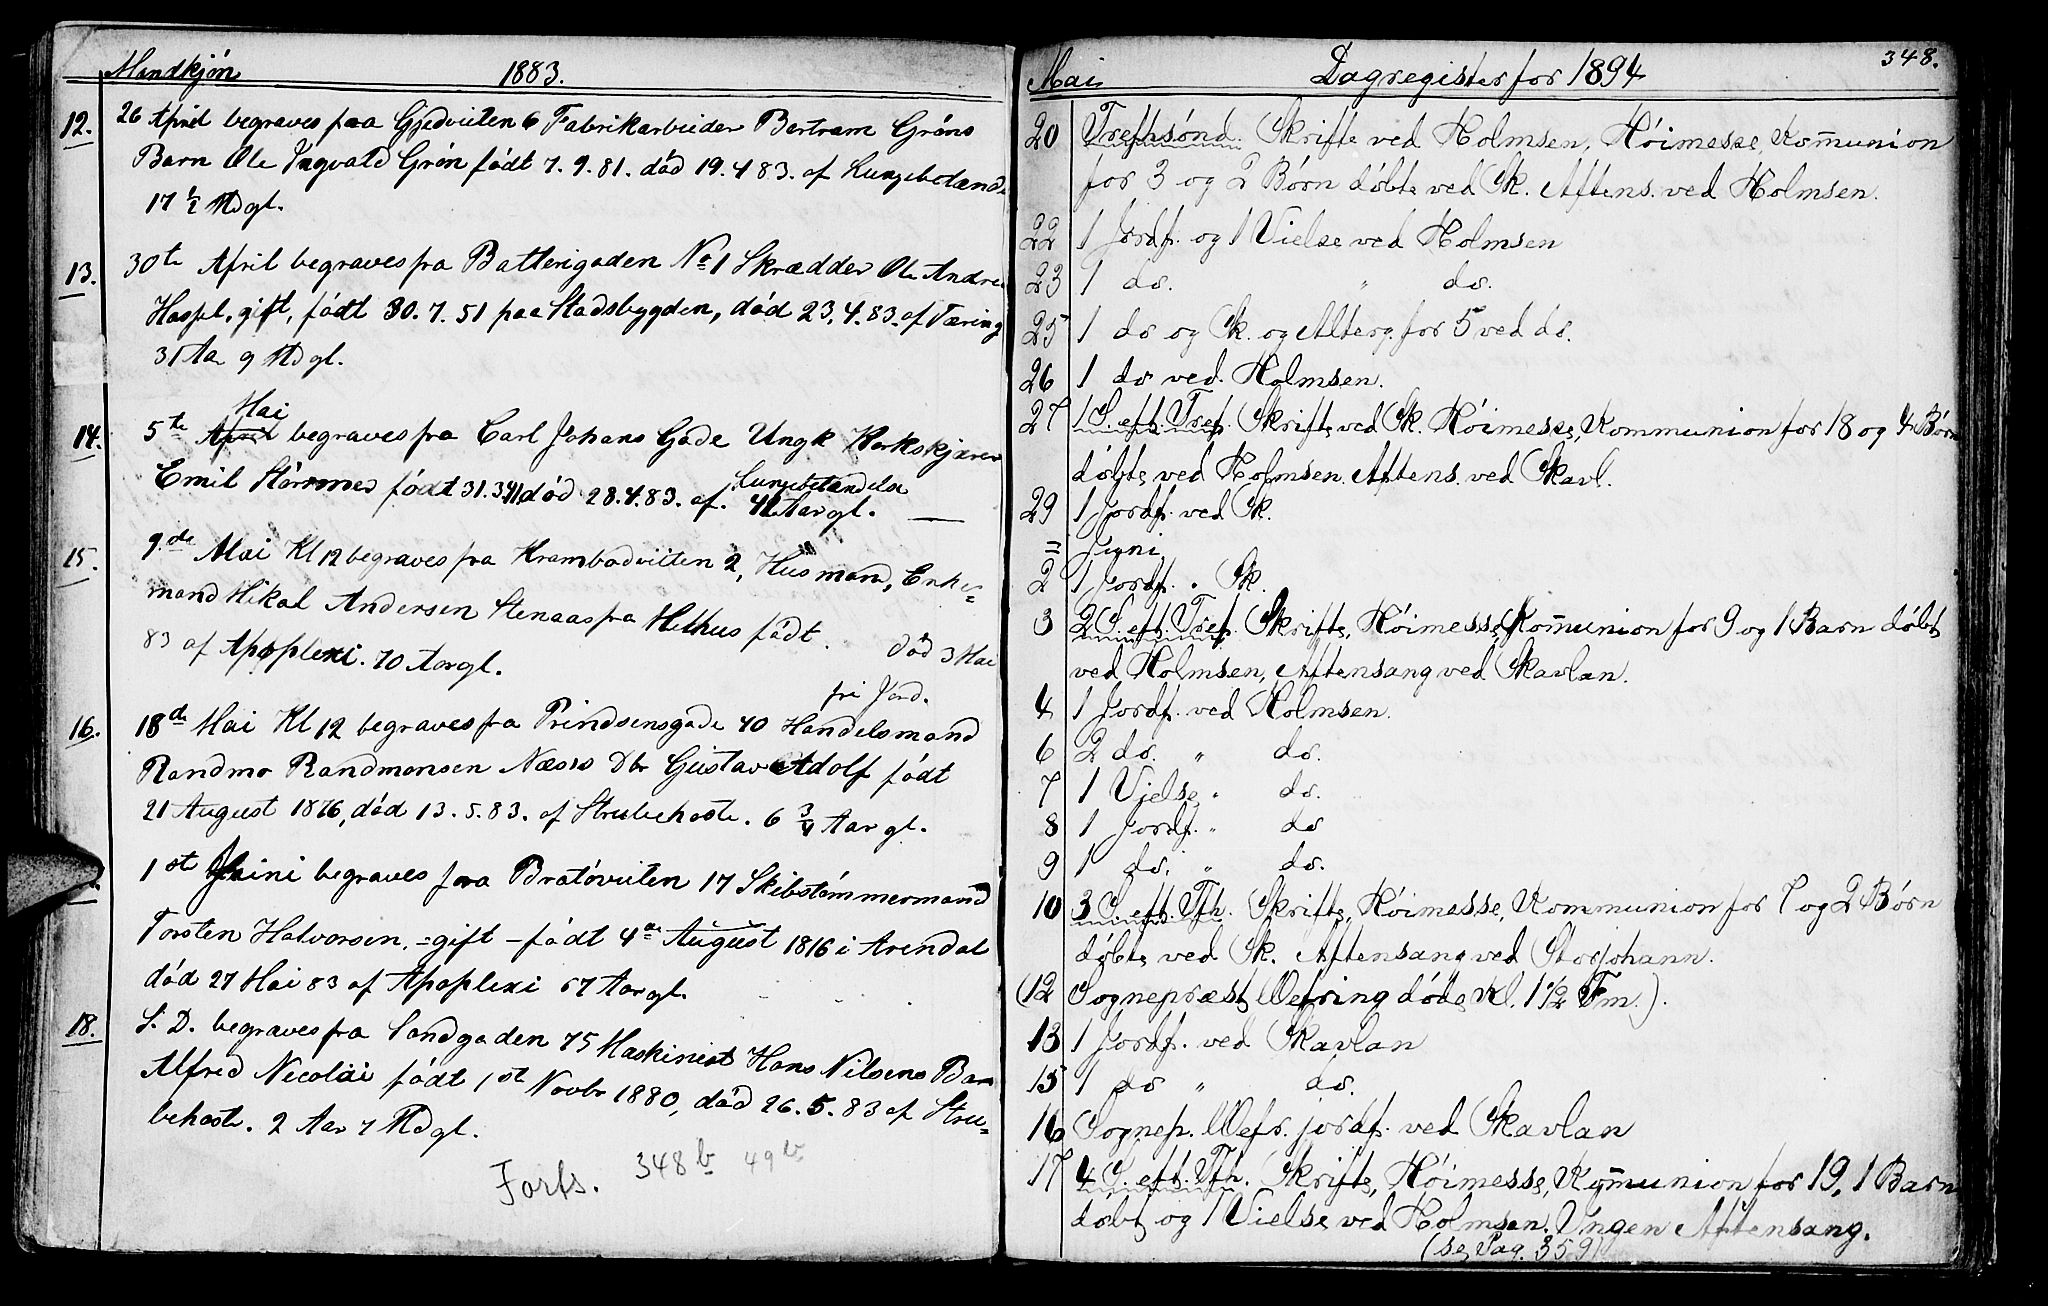 Mandkjøn 1883.
12. 26 April begraves fra Gjedveiten 6 Fabrikarbeider Bertram Grøns
Barn Ole Ingvald Grøn født 7.9.81. død 19.4 83. af Lungebetænd
17 1/2 Md gl.
13. 30te April begraves fra Batterigaden No 1 Skrædder Ole Andre
gift, født 30.7.51 paa Stadsbygden, død 23.4.83. af Tæring
31 Aar 9 Md gl.
Mai
14. 5te April begraves fra Carl Johans Gade Ungk
Emil født 31.3.41 død 28.4.83. af. Lungebetændelse 42 Aar gl.
15. 9de Mai Kl 12 begraves fra Krambodveiten 2, Husmand, Enke-
mand Mikal Andersen Stenaas fra født . død 3 Mai
83 af Apoplexi. 70 Aar gl.
fri Jord.
16. 18de Mai Kl 12 begraves fra Prindsensgade 40 Handelsmand
Randmo Randmonsen Næsss Dbr Gustav Adolf født
21 August 1876, død 13.5.83. af Strubehoste. 6 3/4 Aar gl.
1ste Juni begraves fra Bratøveiten 17 Skibstømmermand
Torsten Halvorsen, = gift - født 4de August 1816 i Arendal
død 27 Mai 83 af Apoplexi 67 Aar gl.
18. S. D. begraves fra Sandgaden 75 Maskinist Hans Nilsens Barn
Alfred Nicolai født 1ste Novbr 1880, død 26.5.83 af Stru-
behoste. 2 Aar 7 Md gl.
Forts. 348 b 49 b
Mai Dagregister for 1894 348.
20 Trefhsønd. Skrifte ved Holmsen, Høimesse, Kommunion
for 3 og 2 Børn døbte ved Sk. Aftens. ved Holmsen.
22 1 Jordf. og 1 Vielse ved Holmsen
23 1 do. " do.
25 1 do og Sk. og Alterg. for 5 ved do.
26 1 do ved Holmsen.
27 1 S. eft. Tref. Skrifte ved Sk. Høimesse, Kommunion for 18 og 4 Børn
døbte ved Holmsen. Aftens. ved Skavl.
29 1 Jordf. ved Sk.
= Juni
2 1 Jordf. " Sk.
3 2 S. eft. Tref. Skrifte, Høimesse, Kommunion for 9 og 1 Barn døbt
ved Holmsen, Aftensang ved Skavlan.
4 1 Jordf. ved Holmsen.
6 2 do. " do.
7 1 Vielse " do.
8 1 Jordf. " do
9 1 do. " do.
10 3 S. eft. Tfh. Skrifte, Høimesse, Kommunion for 7 og 2 Børn
døbte ved Sk. Aftensang ved Storjohann.
(12 Sognepræst Wefring døde Kl. 1 1/2 Fm.).
13 1 Jordf. ved Skavlan
15 1 do " do.
16 Sognep. Wefr. jordf. ved Skavlan
17 4 S. eft. Tfh. Skrifte, Høimesse, Kommunion for 19, 1 Barn
døbt og 1 Vielse ved Holmsen. Yngen Aftensang.
(se Pag. 359)